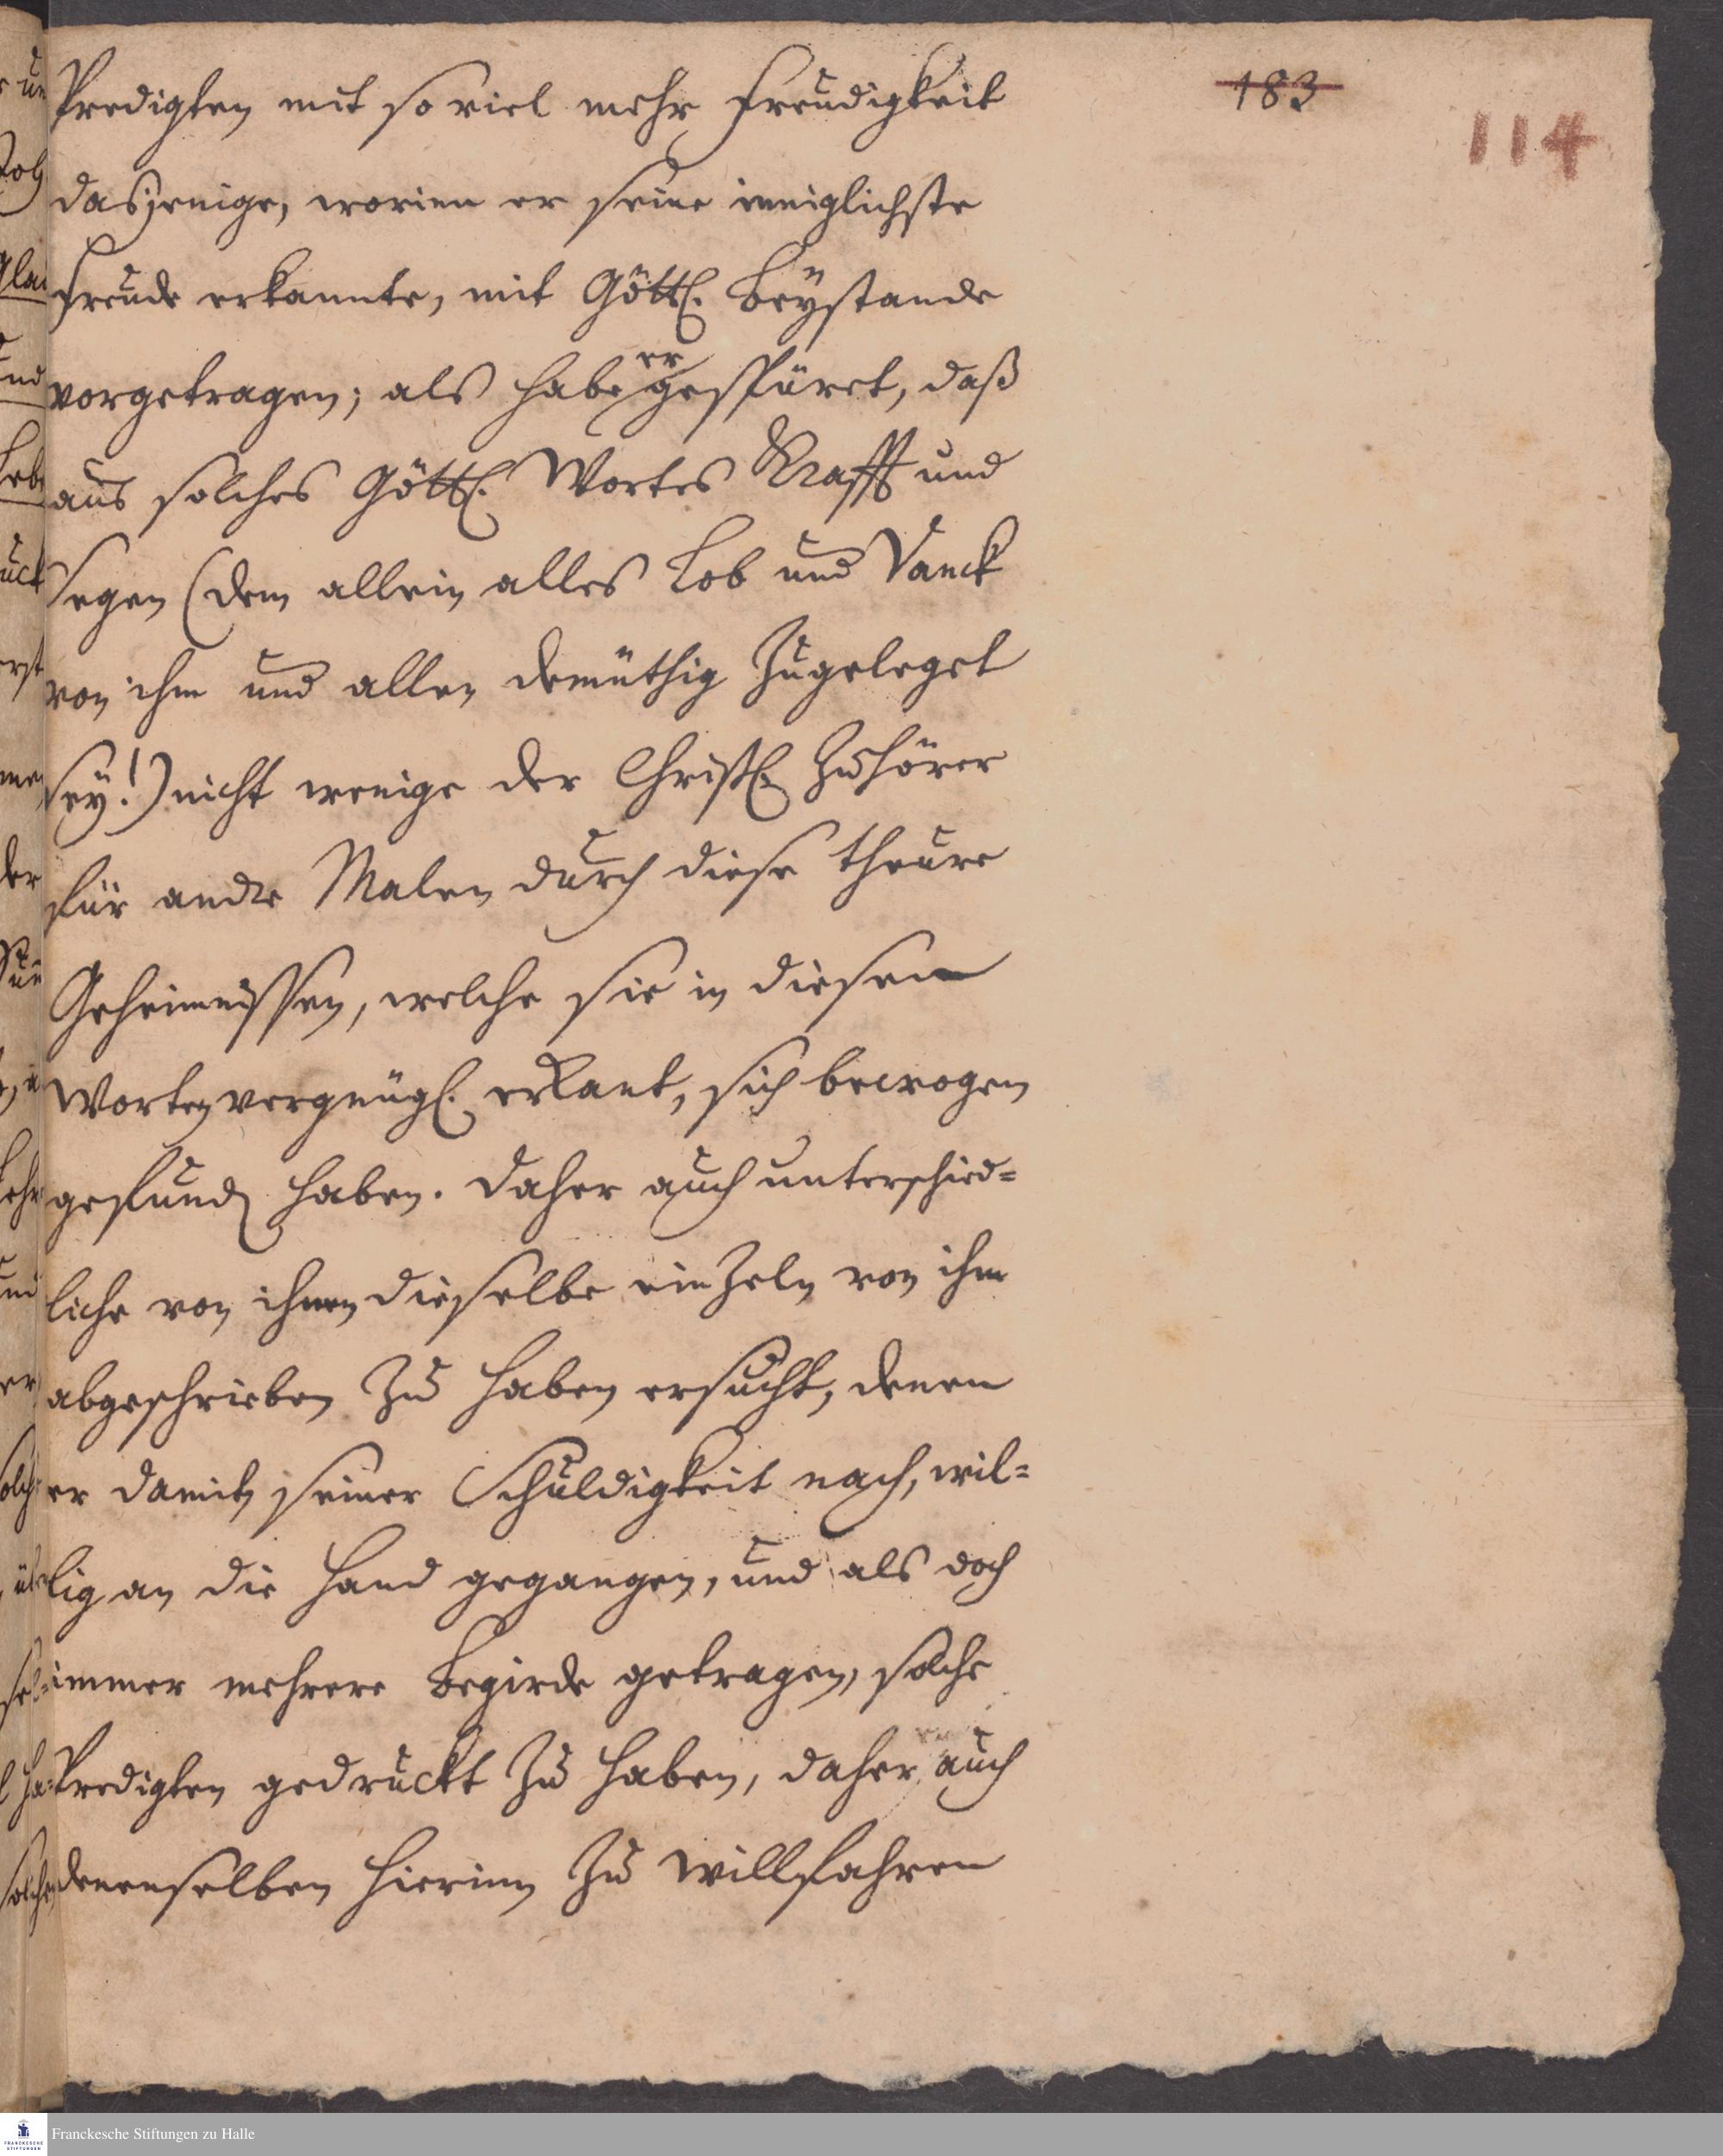 183
114
Predigten mit so viel mehr Freudigkeit
dasjenige, worinn er seine inniglichste
Freude erkannte, mit Göttl. Beystande
vorgetragen; als habe er gespüret, daß
aus solches Göttl. Wortes Krafft und
Segen (dem allein alles Lob und Danck
von ihm und allen demüthig zugeleget
sey!) nicht wenige der Christl. Zuhörer
für andre Malen durch diese theure
Geheimnissen, welche sie in diesem
Worten vergnügl. erkant, sich bewogen
gefunden haben. Daher auch unterschied=
liche von ihnen dieselbe einzeln von ihm
abgeschrieben zu haben ersucht, denen
er damit, seiner Schuldigkeit nach, wil=
lig an die Hand gegangen, und als doch
immer mehrere Begirde getragen, solche
Predigten gedruckt zu haben, daher auch
denenselben hierinn zu willfahren
Franckesche Stiftungen zu Halle